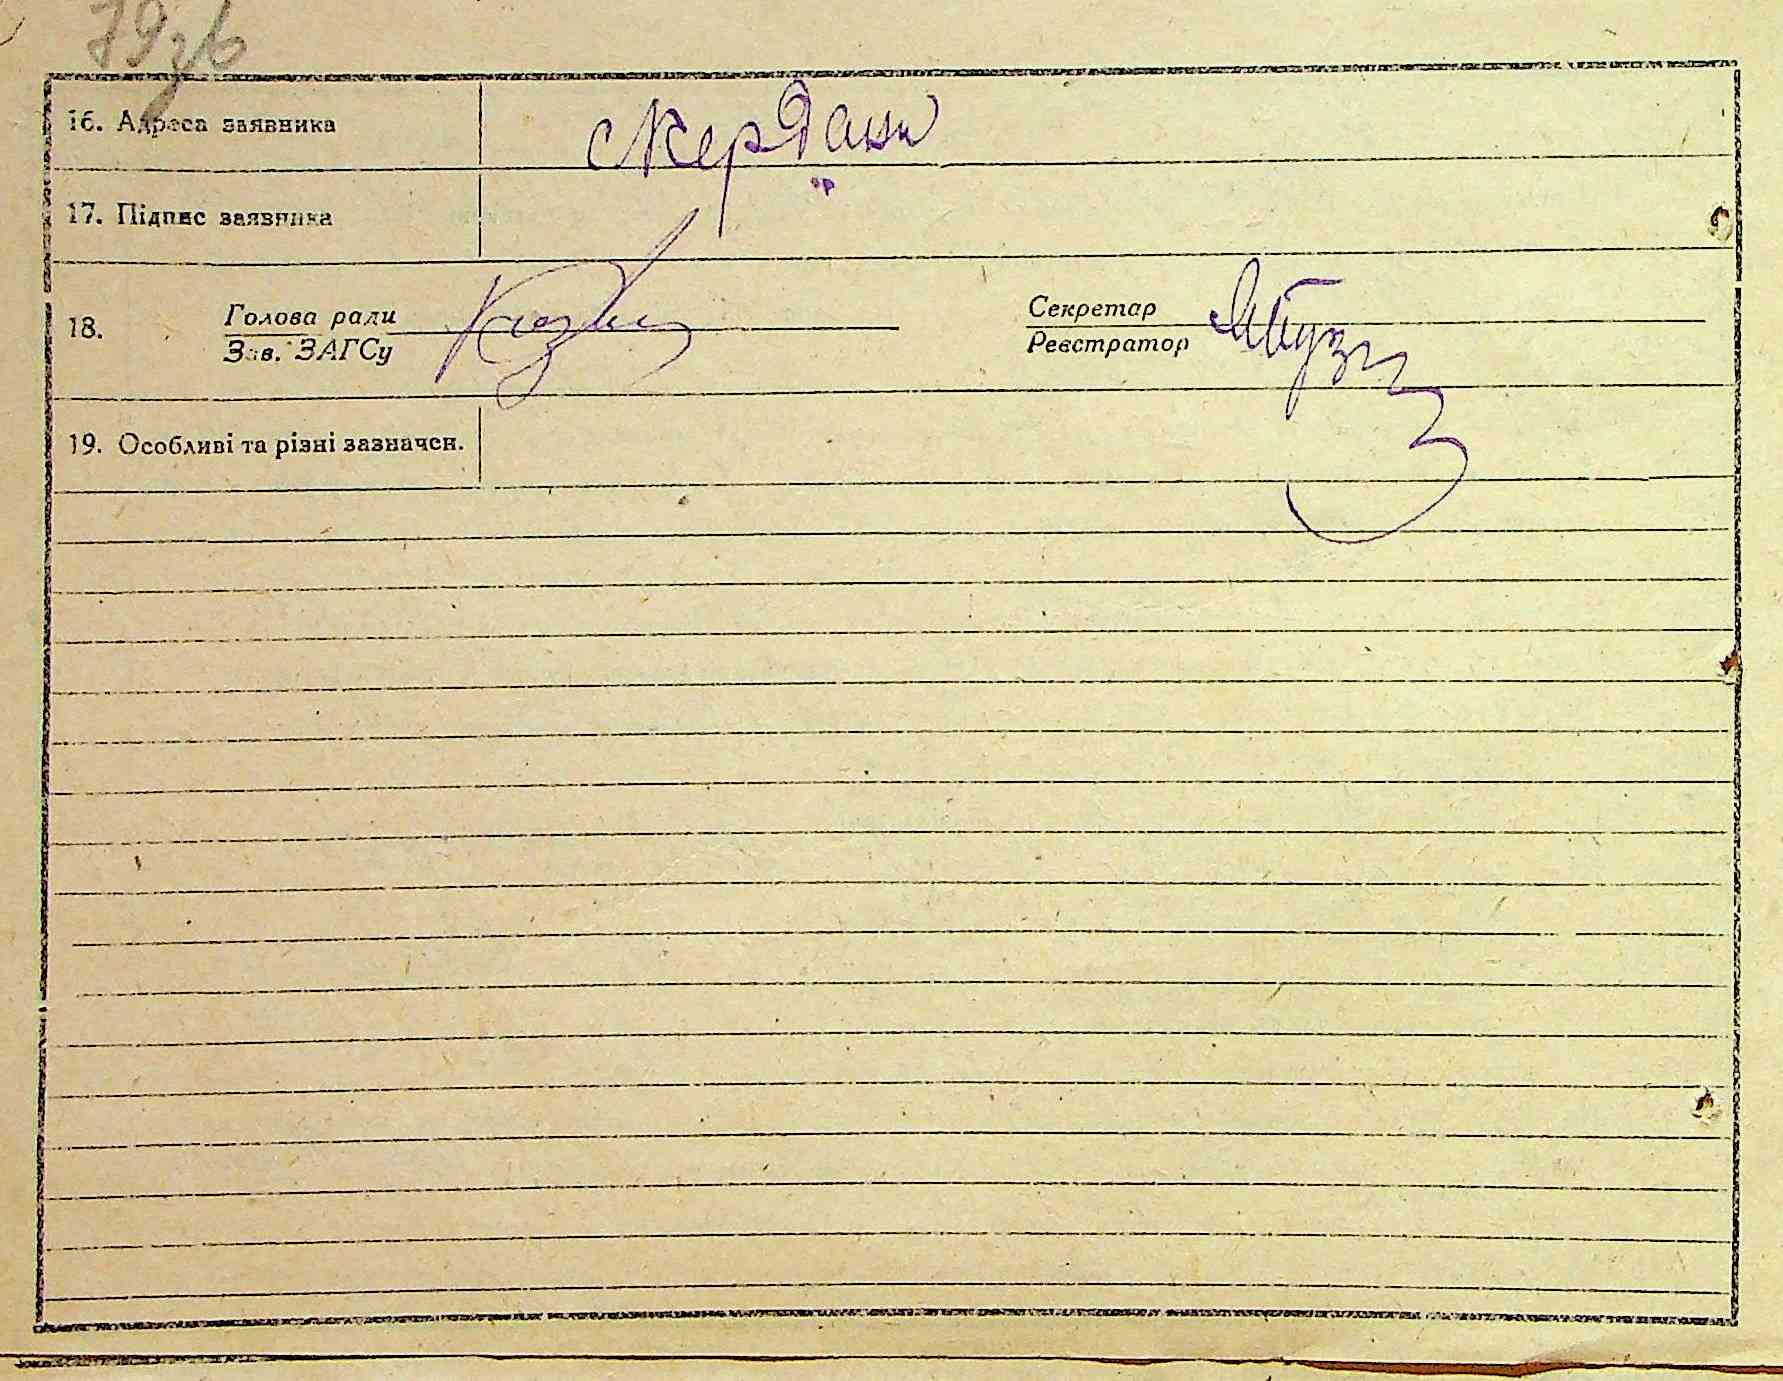 79зв
16. Адреса заявника
17. Підпис заявника
18. Голова ради
Зав. ЗАГСу
Секретар
Реєстратор
19. Особливі та різні зазначен.